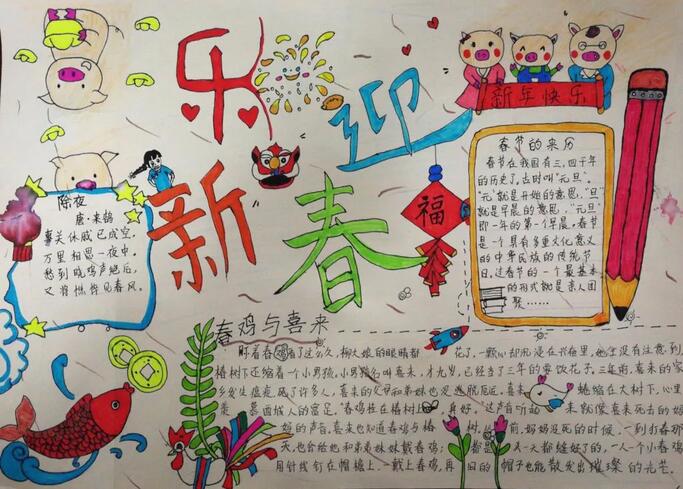 乐
迎
新
春
福
新年快乐
除夜
唐·来鹄
事关休戚已成空，
万里相思一夜中。
愁到晓鸡声绝后，
又将憔悴见春风。
春节的来历
春节在我国有三、四千年
的历史了。古时叫"元旦"。
"元"就是开始的意思，"旦"
就是早晨的意思，"元旦"
即一年的第一个早晨。春节
是一个具有多重文化意义
的中华民族的传统节
日。过春节的一个最基本
的形式就是亲人团
聚……
春鸡与喜来
盯着春鸡看了这么久，柳大娘的眼睛都花了，一颗心却沉浸在兴奋里，她全没有注意到
椿树下还缩着一个小男孩。小男孩名叫喜来，才九岁，已经当了三年的要饭花子。三年前，喜来的家
乡发生瘟疫，死了许多人，喜来的父母和弟妹也没逃脱厄运。喜来蜷缩在大树下，心里
羡慕西信人的富足。"春鸡挂在椿树上，真好。"这声音听起来就像喜来死去的妈
妈的声音，喜来也知道春鸡与椿树。以前，妈妈没死的时候，一到打春那
天，也会给他和弟弟妹妹戴春鸡；都是又一天都缝好了的，一人一个小春鸡
用针线钉在帽檐上。一戴上春鸡，再旧的帽子也能散发出璀璨的光芒。